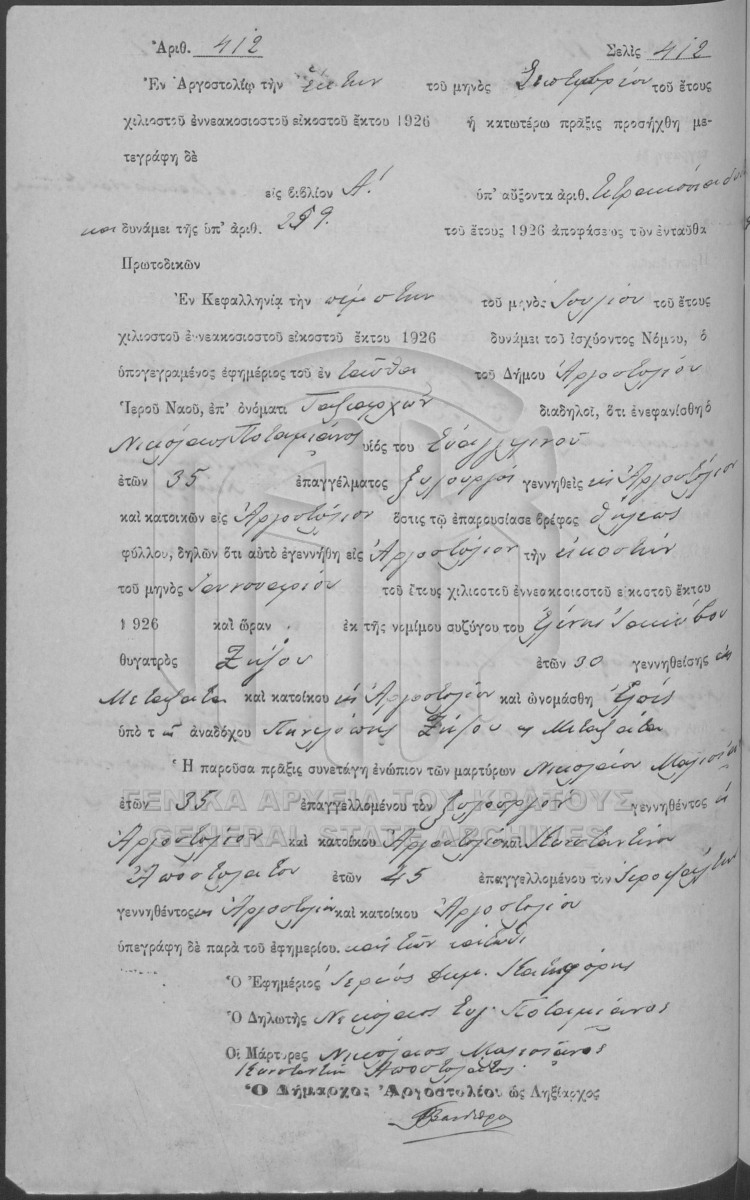 Ἀριθ. 412 Σελὶς 412
Ἐν Ἀργοστολίῳ τὴν ἕκτην τοῦ μηνὸς Σεπτεμβρίου τοῦ ἔτους
χιλιοστοῦ ἐννεακοσιοστοῦ εἰκοστοῦ ἕκτου 1926 ἡ κατωτέρω πρᾶξις προσήχθη με-
τεγράφη δὲ
εἰς βιβλίον Α! ὑπ' αὔξοντα ἀριθ. τετρακόσια δώ
και δυνάμει τῆς ὑπ' ἀριθ. 259. τοῦ ἔτους 1926 ἀποφάσεως τῶν ἐνταῦθα
Πρωτοδικῶν
Ἐν Κεφαλληνίᾳ τὴν πέμπτην τοῦ μηνὸς Ἰουλίου τοῦ ἔτους
χιλιοστοῦ ἐννεακοσιοστοῦ εἰκοστοῦ ἕκτου 1926 δυνάμει τοῦ ἰσχύοντος Νόμου, ὁ
ὑπογεγραμένος ἐφημέριος τοῦ ἐν ταῦθα τοῦ Δήμου Ἀργοστολίου
Ἱεροῦ Ναοῦ, ἐπ' ὀνόματι Ταξιαρχῶν διαδηλοῖ, ὅτι ἐνεφανίσθη ὁ
Νικόλαος Ποταμιάνος υἱός του Εὐαγγελινοῦ
ἐτῶν 35 ἐπαγγέλματος ξυλουργός γεννηθεὶς εἰς Ἀργοστόλιον
καὶ κατοικῶν εἰς Ἀργοστόλιον ὅστις τῷ ἐπαρουσίασε βρέφος θήλεως
φύλλου, δηλῶν ὅτι αὐτὸ ἐγεννήθη εἰς Ἀργοστόλιον τὴν εἰκοστήν
τοῦ μηνὸς Ἰαννουαρίου τοῦ ἔτους χιλιοστοῦ ἐννεακοσιοστοῦ εἰκοστοῦ ἕκτου
1926 καὶ ὥραν ἐκ τῆς νομίμου συζύγου του Ἑλένης Ἰακώβου
θυγατρὸς Ζήσου ἐτῶν 30 γεννηθείσης εἰς
Μεταξάτα καὶ κατοίκου εἰς Ἀργοστόλιον καὶ ὠνομάσθη
ὑπὸ τῆς ἀναδόχου Πηνελόπης Ζήσου Μεταξάτα
Ἡ παροῦσα πρᾶξις συνετάγη ἐνώπιον τῶν μαρτύρων Νικολάου
ἐτῶν 35 ἐπαγγελλομένου τὸν ξυλουργόν γεννηθέντος εἰς
Ἀργοστόλιον καὶ κατοίκου Ἀργοστολίου καὶ Κωνσταντίνου
Ἀποστολάτου ἐτῶν 45 ἐπαγγελλομένου τὸν Ἱεροψάλτην
γεννηθέντος εἰς Ἀργοστόλιον καὶ κατοίκου Ἀργοστολίου
ὑπεγράφη δὲ παρὰ τοῦ ἐφημερίου.
Ὁ Ἐφημέριος Ἱερεύς Δημ.
Ὁ Δηλωτὴς Νικόλαος Εὐγ. Ποταμιάνος
Οἱ Μάρτυρες Νικόλαος
Κωνσταντῖν Ἀποστολάτος
Ὁ Δήμαρχος Ἀργοστολίου ὡς Ληξίαρχος
ΓΕΝΙΚΑ ΑΡΧΕΙΑ ΤΟΥ ΚΡΑΤΟΥΣ
GENERAL STATE ARCHIVES